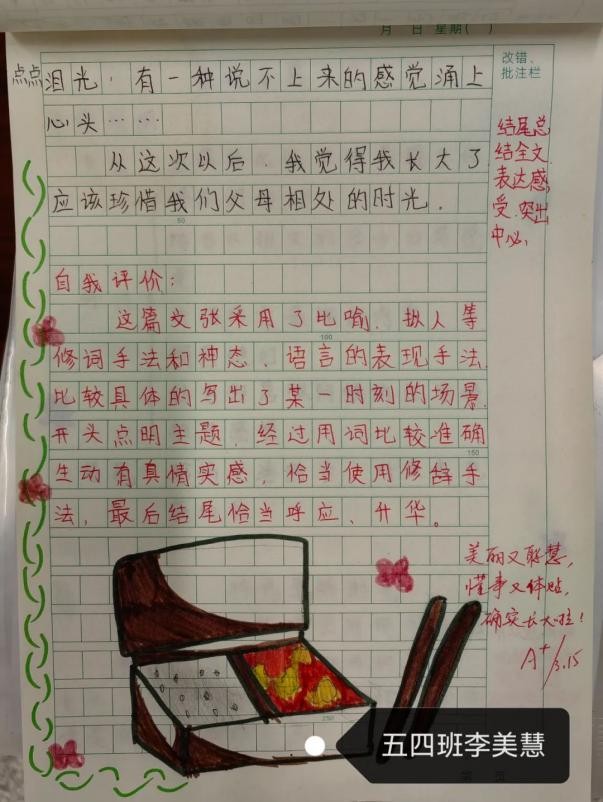 月 日 星期( )
改错、
批注栏
点点泪光，有一种说不上来的感觉涌上
心头……
从这次以后，我觉得我长大了
应该珍惜我们父母相处的时光.
50
结尾总
结全文
表达感
受.突出
中心、
自我评价：
这篇文张采用了比喻、拟人等
100
修词手法和神态、语言的表现手法.
比较具体的写出了某一时刻的场景.
开头点明主题，经过用词比较准确
150
生动有真情实感，恰当使用修辞手
法，最后结尾恰当呼应、升华。
美丽又聪慧，
懂事又体贴，
确实长大啦！
A+/3.15
250
五四班李美慧
第 页